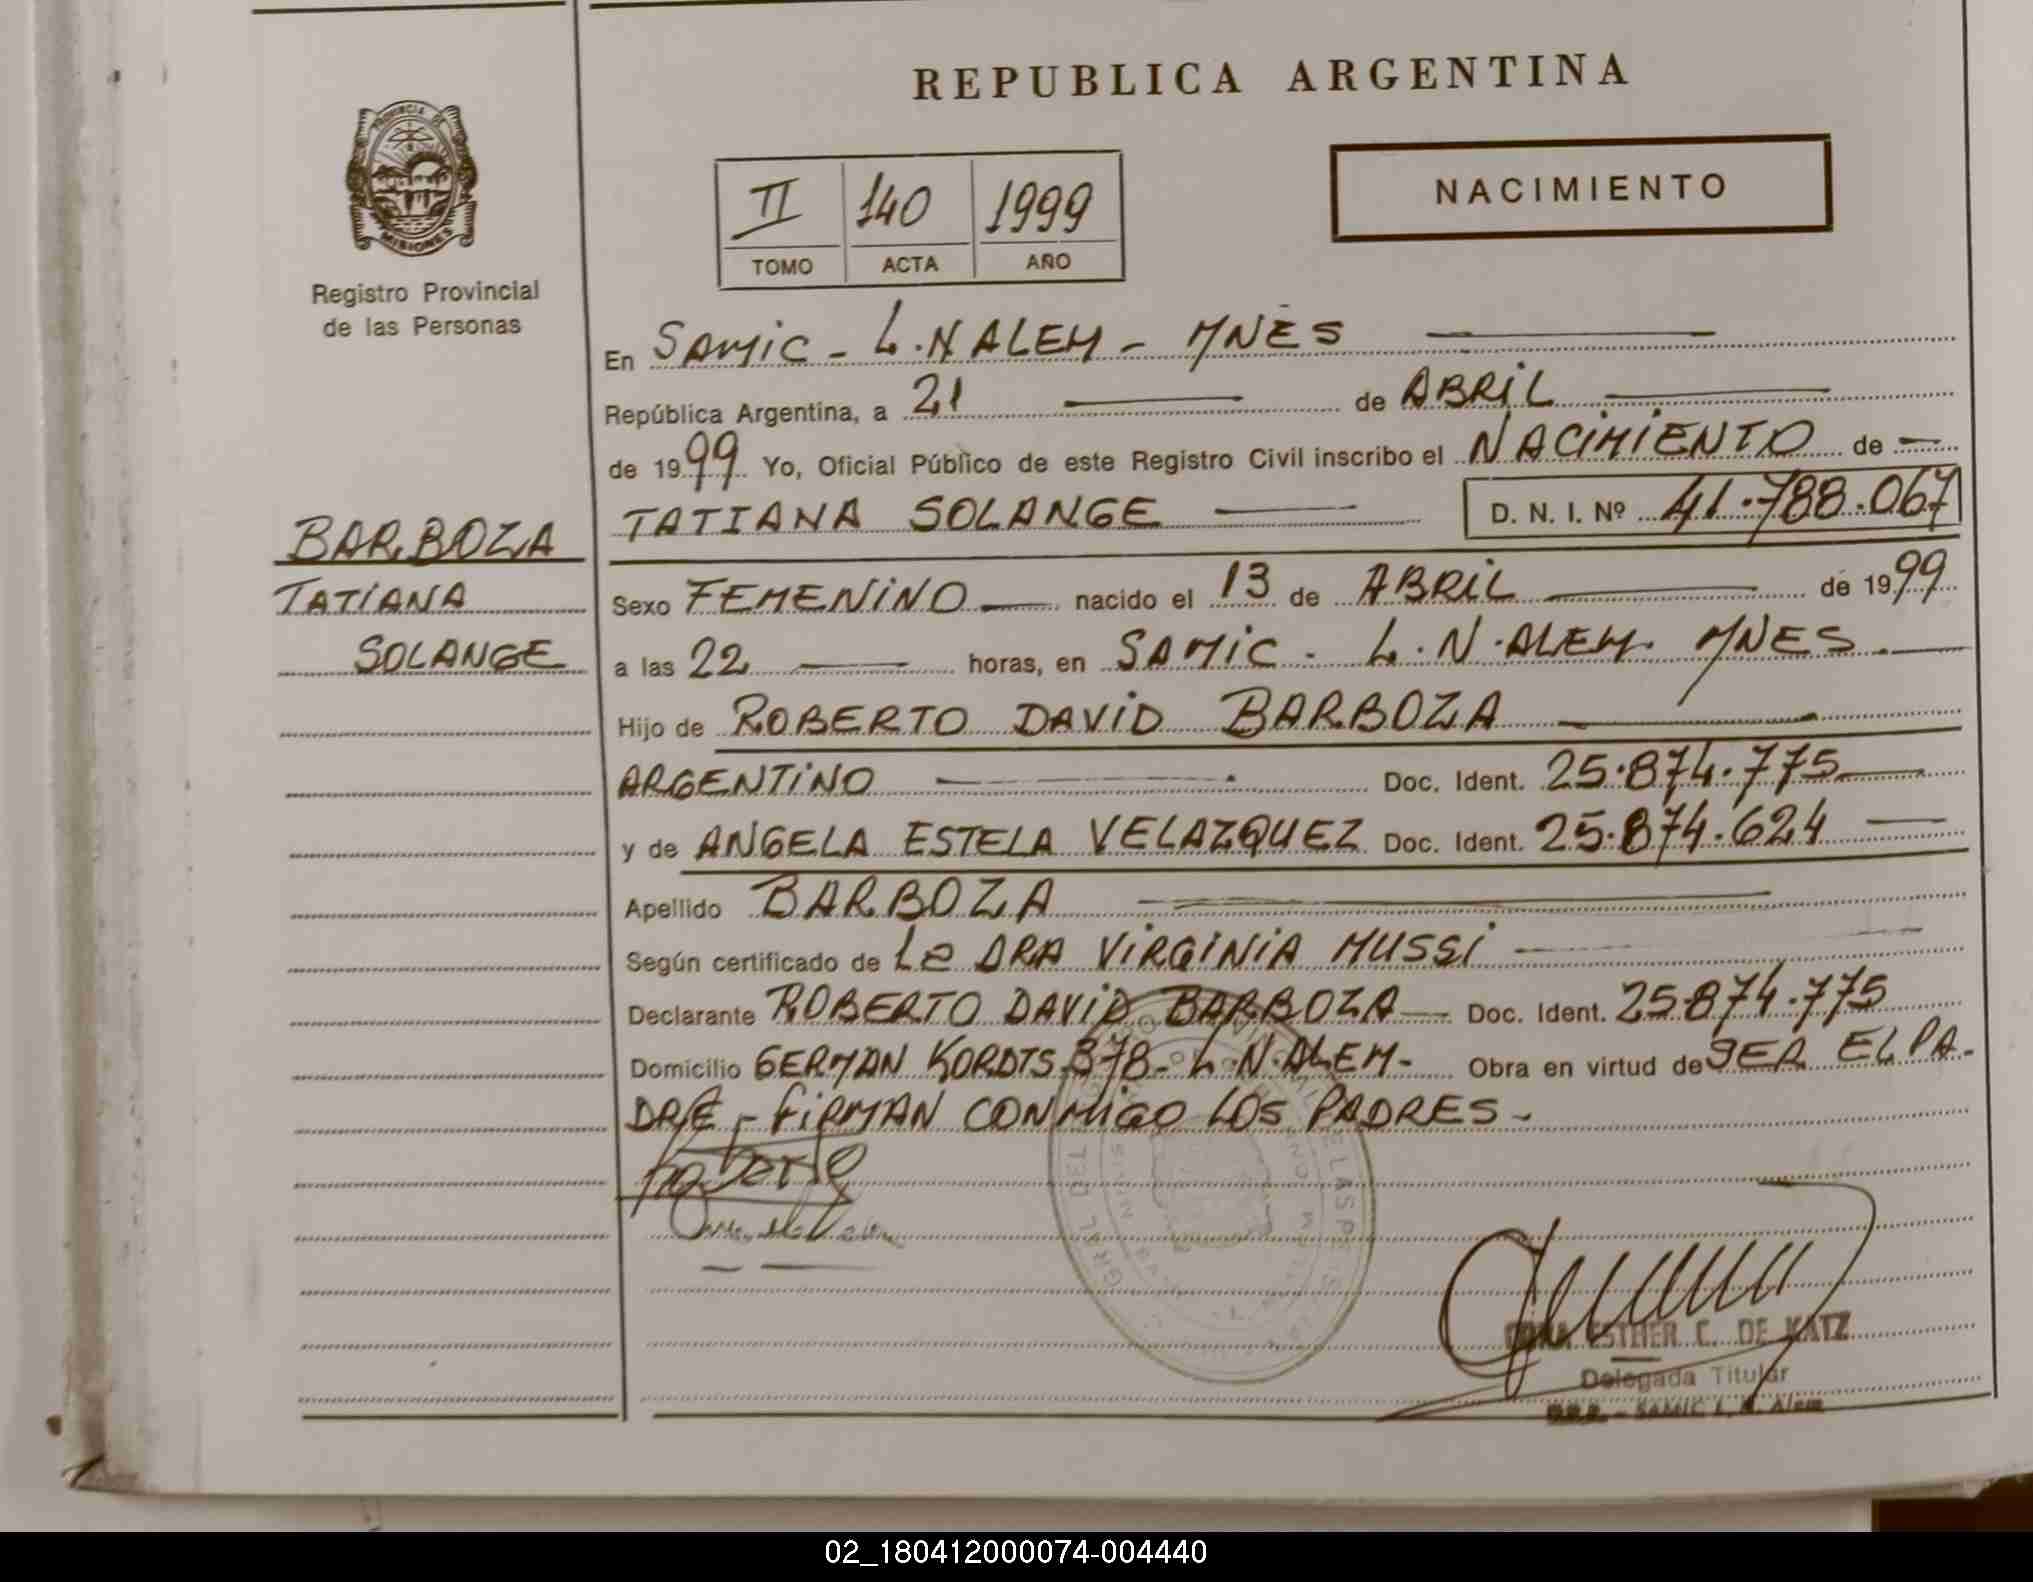 REPUBLICA ARGENTINA
PROVINCIA DE
MISIONES
Registro Provincial
de las Personas
II 140 1999
TOMO ACTA AÑO
NACIMIENTO
En SAMIC - L.N ALEM - MNES
República Argentina, a 21 de ABRIL
de 1999 Yo, Oficial Público de este Registro Civil inscribo el NACIMIENTO de
BARBOZA
TATIANA
SOLANGE
TATIANA SOLANGE D. N. I. Nº 41.788.067
Sexo FEMENINO nacido el 13 de ABRIL de 1999
a las 22 horas, en SAMIC - L.N.ALEM. MNES.
Hijo de ROBERTO DAVID BARBOZA
ARGENTINO Doc. Ident. 25.874.775
y de ANGELA ESTELA VELAZQUEZ Doc. Ident. 25.874.624
Apellido BARBOZA
Según certificado de La DRA VIRGINIA MUSSI
Declarante ROBERTO DAVID BARBOZA Doc. Ident. 25.874.775
Domicilio GERMAN KORDTS 378 - L.N.ALEM - Obra en virtud de SER EL PA-
DRE - FIRMAN CONMIGO LOS PADRES -
ESTHER C. DE KATZ
Delegada Titular
SAMIC L. N. Alem
02_180412000074-004440